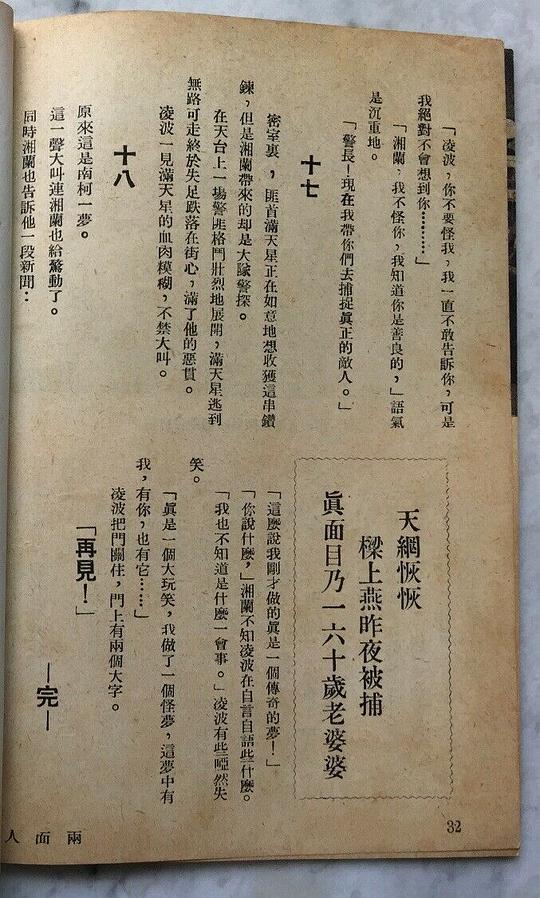 「凌波，你不要怪我，我一直不敢告訴你，可是
我絕對不會想到你………」
「湘蘭，我不怪你，我知道你是善良的，」語氣
是沉重地。
「警長！現在我帶你們去捕捉眞正的敵人。」
十七
密室裏，匪首滿天星正在如意地想收獲這串鑽
鍊，但是湘蘭帶來的却是大隊警探。
在天台上一場警匪格鬥壯烈地展開，滿天星逃到
無路可走終於失足跌落在街心，滿了他的惡貫。
凌波一見滿天星的血肉模糊，不禁大叫。
十八
原來這是南柯一夢。
這一聲大叫連湘蘭也給驚動了。
同時湘蘭也告訴他一段新聞：
天網恢恢
樑上燕昨夜被捕
眞面目乃一六十歲老婆婆
「這麼說我剛才做的眞是一個傳奇的夢！」
「你說什麼，」湘蘭不知凌波在自言自語些什麼。
「我也不知道是什麼一會事。」凌波有些啞然失
笑。
「眞是一個大玩笑，我做了一個怪夢，這夢中有
我，有你，也有它……」
凌波把門關住，門上有兩個大字。
「再見！」
—完—
32
兩面人